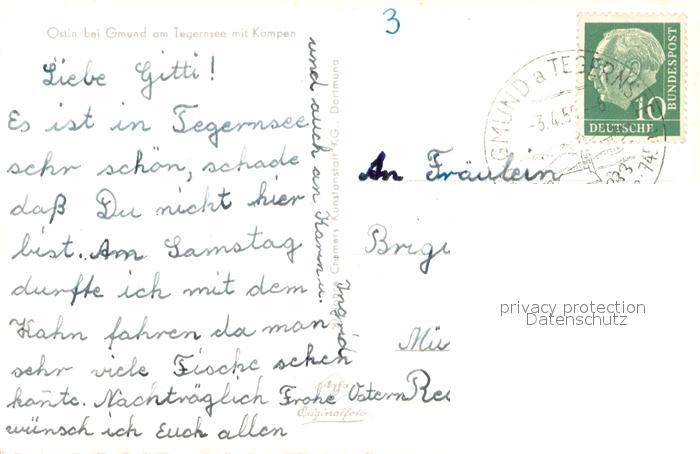 3
Ostin bei Gmund am Tegernsee mit Kampen
Liebe Gitti!
Es ist in Tegernsee
sehr schön, schade
daß Du nicht hier
bist. Am Samstag
durfte ich mit dem
Kahn fahren da man
sehr viele Fische sehen
kañte. Nachträglich Frohe Ostern
wünsch ich Euch allen
und auch an Karin u.
Ingrid
Cramers Kunstanstalt KG., Dortmund
Originalfoto
GMUND a TEGERNS
-3.4.59
10
DEUTSCHE
BUNDESPOST
An Fräulein
Brigi
Mü
Re
privacy protection
Datenschutz